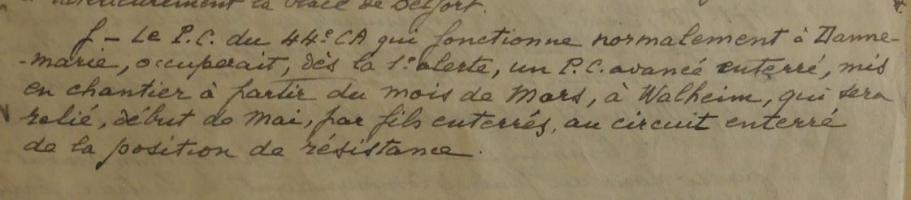 la Place de Belfort.
f - Le P.C. du 44e CA qui fonctionne normalement à Danne-
-marie, occuperait, dès la 1e alerte, un P.C. avancé enterré, mis
en chantier à partir du mois de Mars, à Walheim, qui sera
relié, début de Mai, par fils enterrés, au circuit enterré
de la position de résistance.